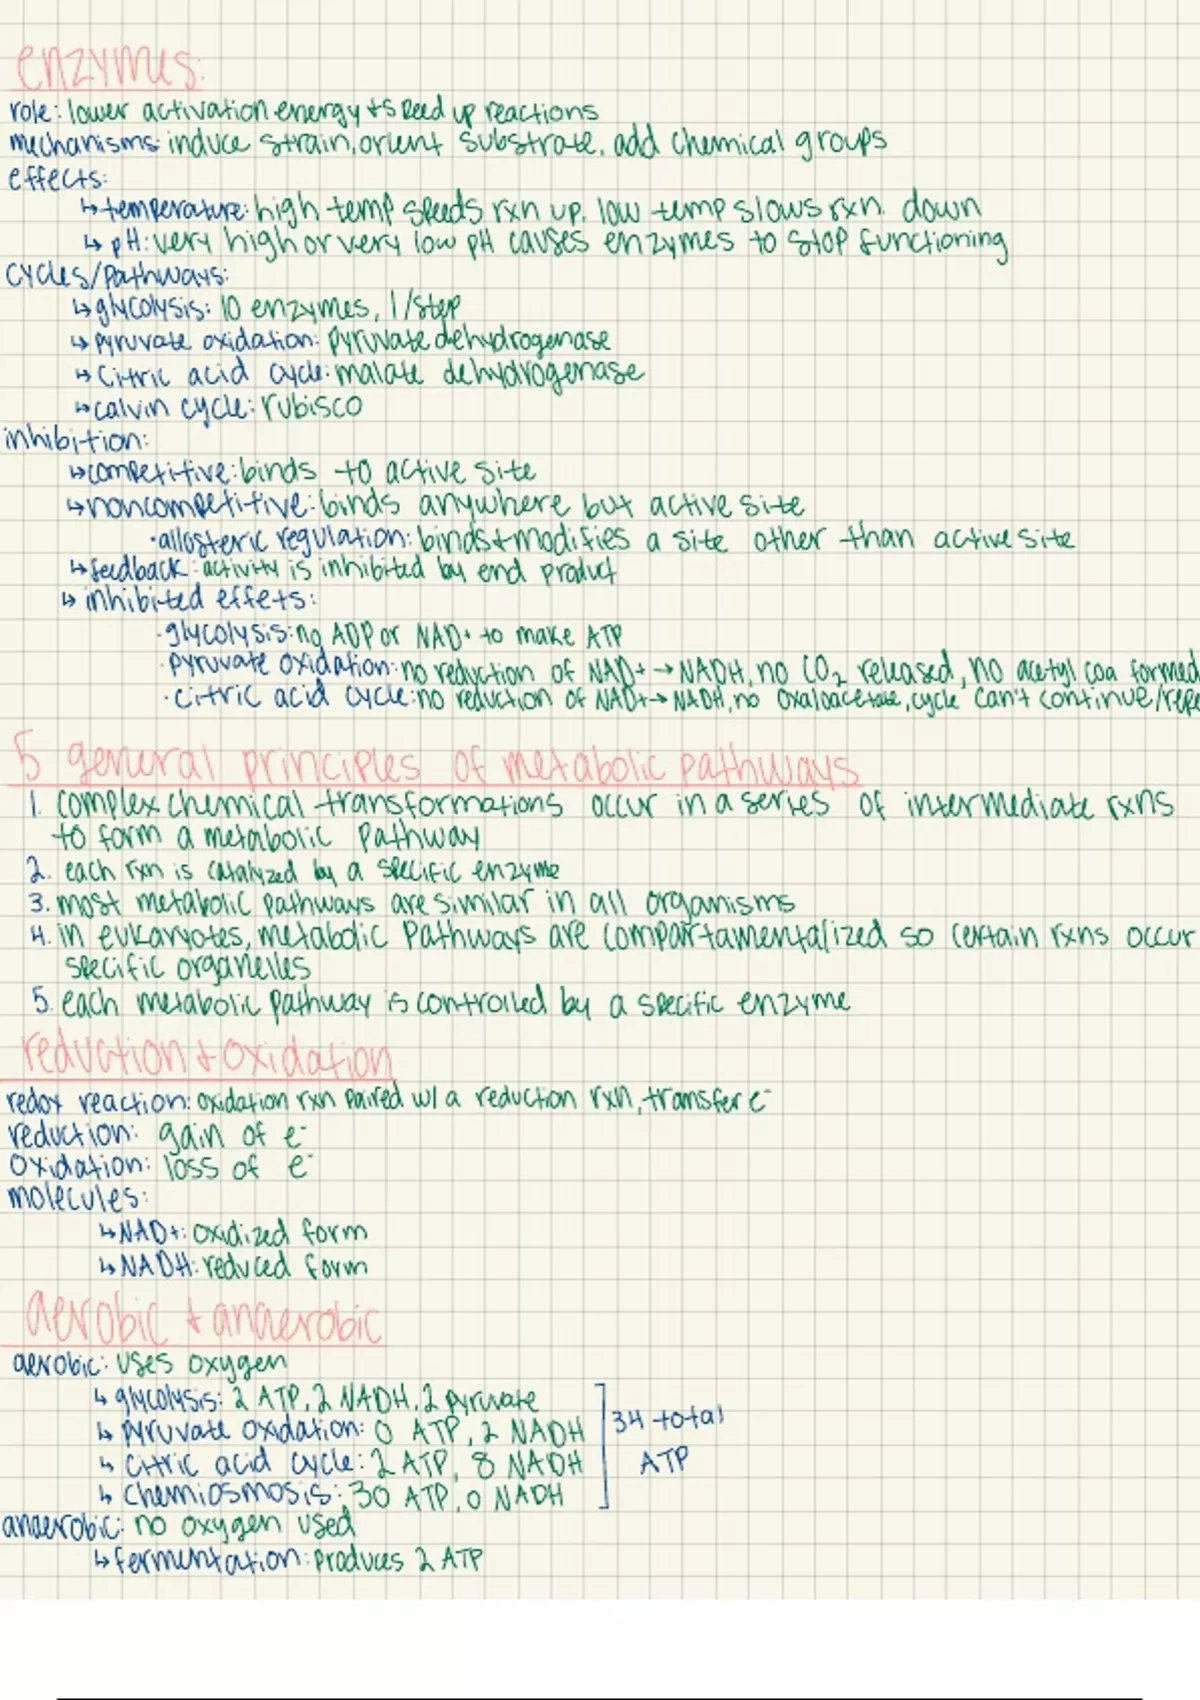 enzymes:
role: lower activation energy + speed up reactions
mechanisms: induce strain, orient substrate, add chemical groups
effects:
↳ temperature: high temp speeds rxn up, low temp slows rxn down
↳ pH: very high or very low pH causes enzymes to stop functioning
cycles/pathways:
↳ glycolysis: 10 enzymes, 1/step
↳ pyruvate oxidation: pyruvate dehydrogenase
↳ citric acid cycle: malate dehydrogenase
↳ calvin cycle: rubisco
inhibition:
↳ competitive: binds to active site
↳ noncompetitive: binds anywhere but active site
· allosteric regulation: binds + modifies a site other than active site
↳ feedback: activity is inhibited by end product
↳ inhibited effets:
· glycolysis: no ADP or NAD+ to make ATP
· pyruvate oxidation: no reduction of NAD+ → NADH, no CO₂ released, no acetyl coa formed
· citric acid cycle: no reduction of NAD+ → NADH, no oxaloacetate, cycle can't continue/repe
5 general principles of metabolic pathways
1. complex chemical transformations occur in a series of intermediate rxns
to form a metabolic pathway
2. each rxn is catalyzed by a specific enzyme
3. most metabolic pathways are similar in all organisms
4. in eukaryotes, metabolic pathways are compartamentalized so certain rxns occur
specific organelles
5. each metabolic pathway is controlled by a specific enzyme
reduction + oxidation
redox reaction: oxidation rxn paired w/ a reduction rxn, transfer e⁻
reduction: gain of e⁻
oxidation: loss of e⁻
molecules:
↳ NAD+: oxidized form
↳ NADH: reduced form
aerobic + anaerobic
aerobic: uses oxygen
↳ glycolysis: 2 ATP, 2 NADH, 2 pyruvate
↳ pyruvate oxidation: 0 ATP, 2 NADH
34 total
↳ citric acid cycle: 2 ATP, 8 NADH
ATP
↳ chemiosmosis: 30 ATP, 0 NADH
anaerobic: no oxygen used
↳ fermentation: produces 2 ATP